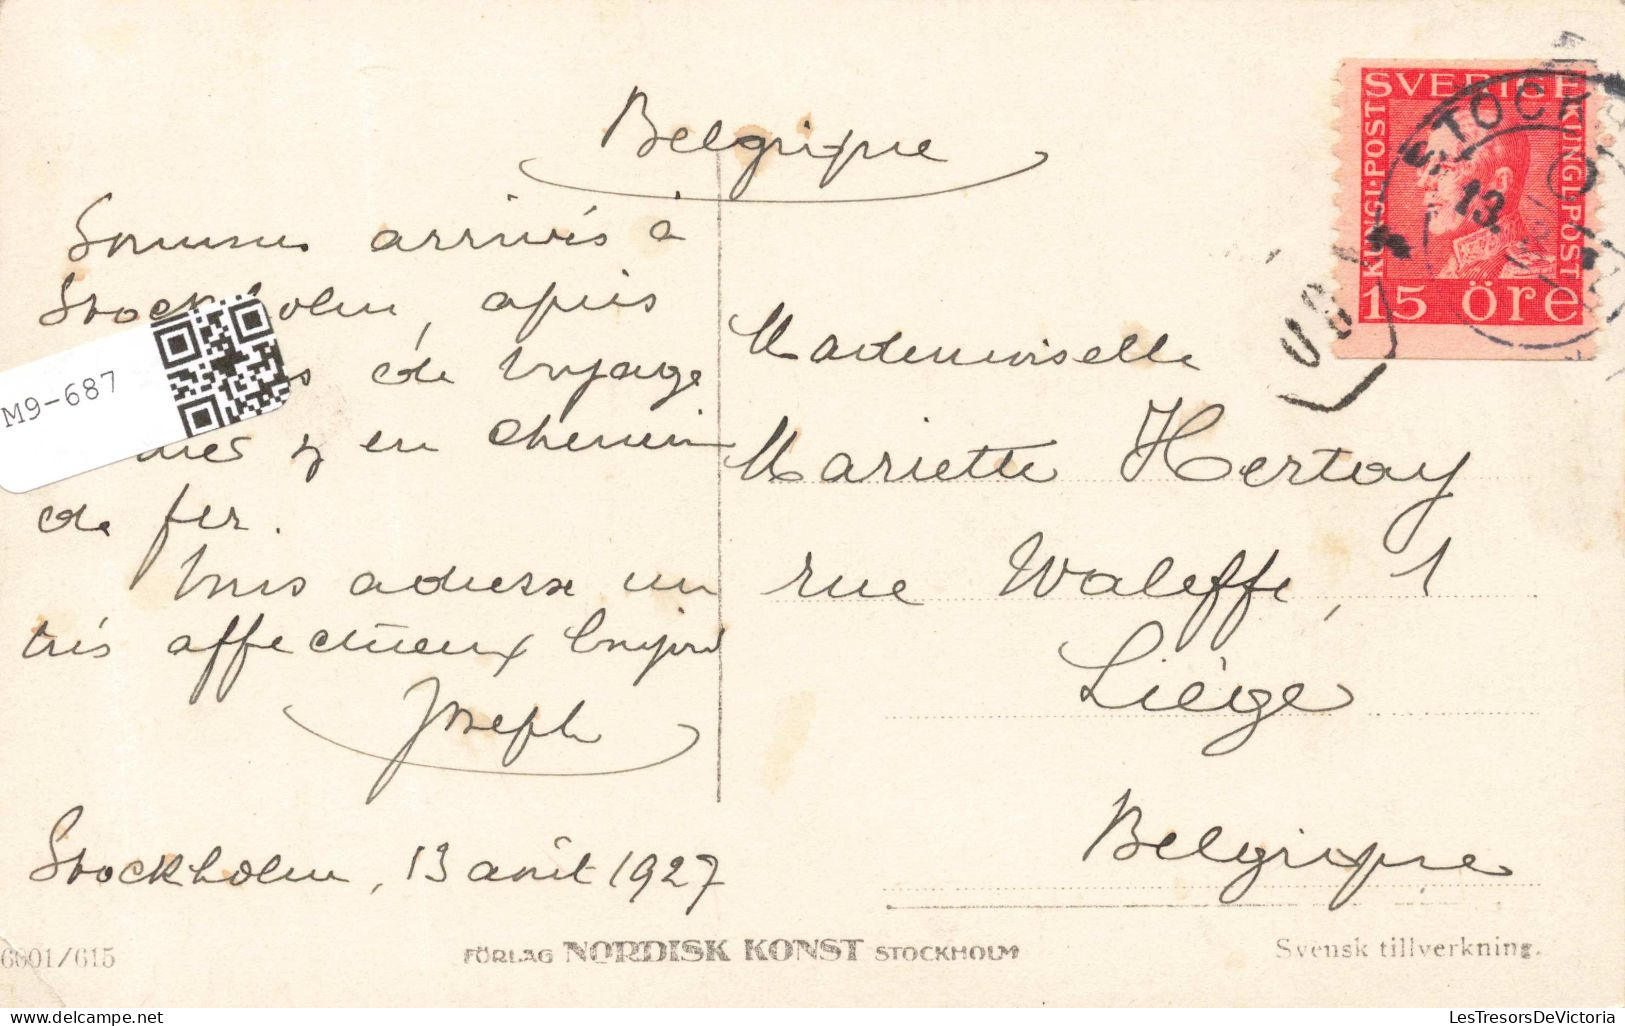 Belgique
Sommes arrivés à
Stockholm, après
de voyage
en chemin
de fer.
Vous adresse un
très affectueux bonjour
Joseph
Stockholm, 13 août 1927
Mademoiselle
Mariette Hertay
rue Waleffe, 1
Liège
Belgique
SVERIGE
KUNGL·POST
KUNGL·POST
15 ÖRE
STOCKH
13
M9-687
6001/615
FÖRLAG NORDISK KONST STOCKHOLM
Svensk tillverkning.
delcampe.net
LesTresorsDeVictoria